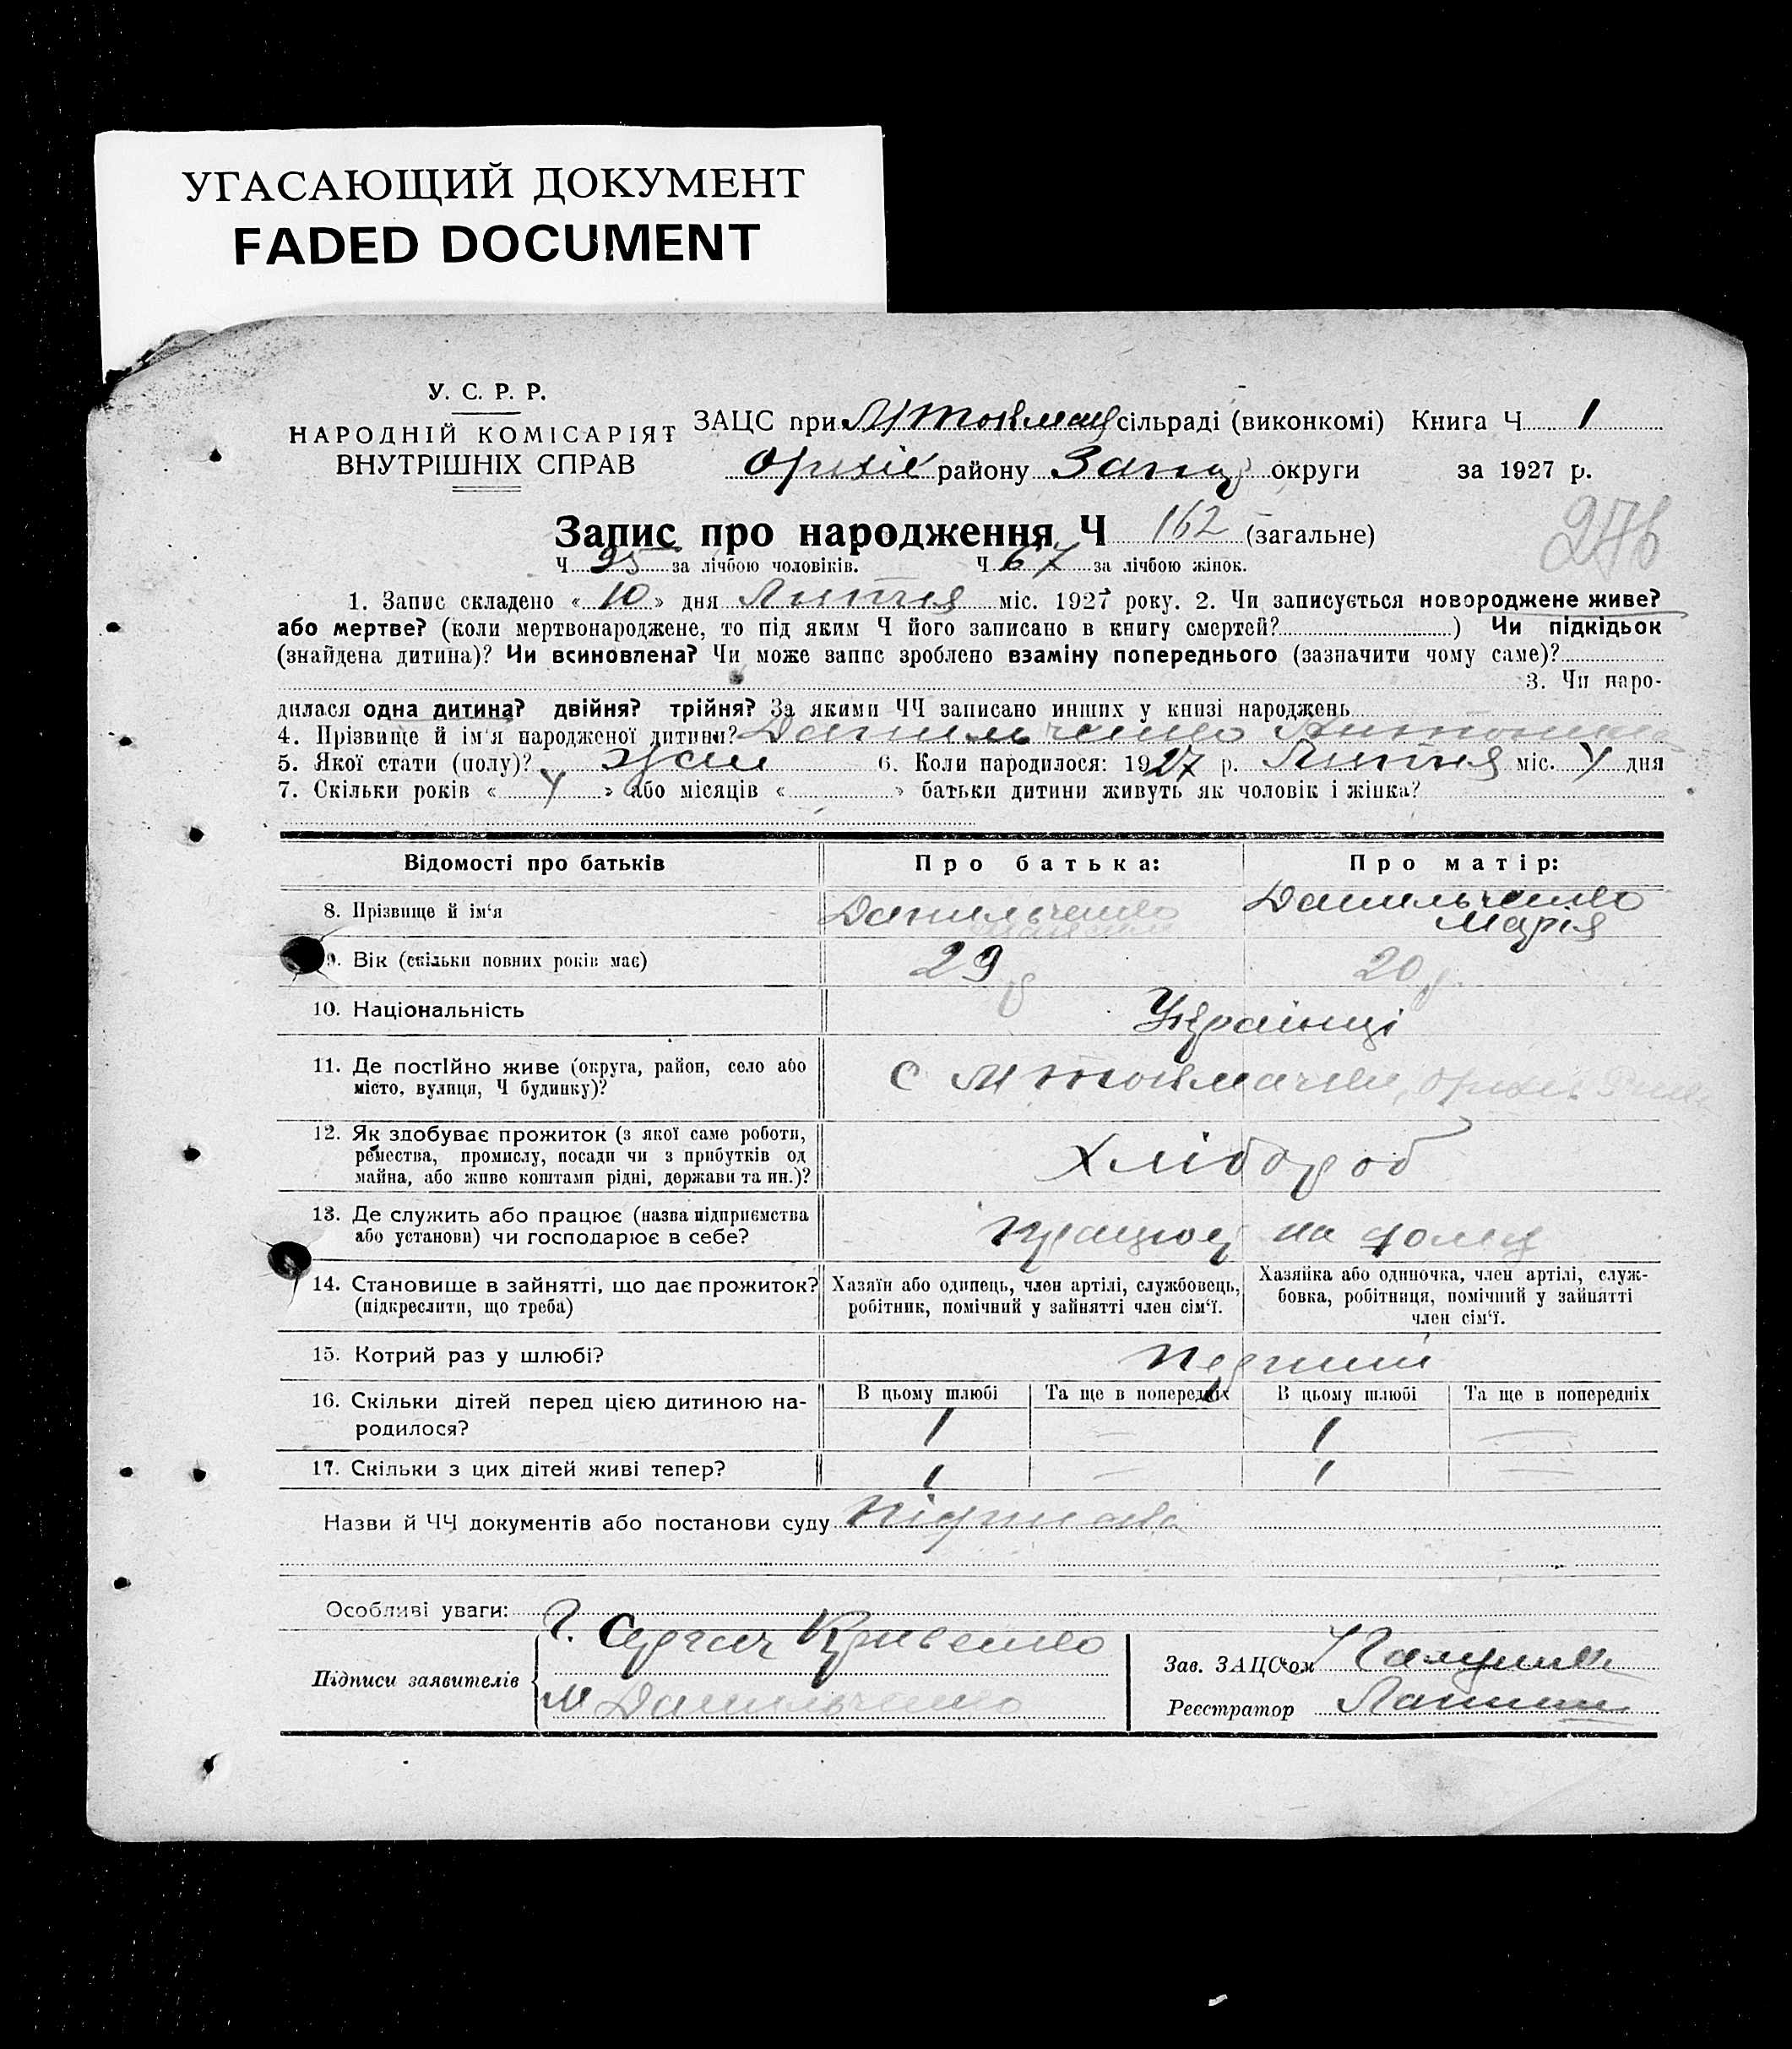 УГАСАЮЩИЙ ДОКУМЕНТ
FADED DOCUMENT
У. С. Р. Р.
НАРОДНІЙ КОМІСАРІЯТ
ВНУТРІШНІХ СПРАВ
ЗАЦС при М Токмац сільраді (виконкомі) Книга Ч 1
Оріхів району Запор округи за 1927 р.
Запис про народження Ч 162 (загальне)
276
Ч 95 за лічбою чоловіків. Ч 67 за лічбою жінок.
1. Запис складено « 10 » дня Липня міс. 1927 року. 2. Чи записується новороджене живе?
або мертве? (коли мертвонароджене, то під яким Ч його записано в книгу смертей? ) Чи підкідьок
(знайдена дитина)? Чи всиновлена? Чи може запис зроблено взаміну попереднього (зазначити чому саме)?
3. Чи наро-
дилася одна дитина? двійня? трійня? За якими ЧЧ записано инших у книзі народжень
4. Прізвище й ім'я народженої дитини? Данильченко Антонина
5. Якої стати (полу)? жін 6. Коли народилося: 1927 р. Липня міс. 4 дня
7. Скільки років « 4 » або місяців « » батьки дитини живуть як чоловік і жінка?
Відомості про батьків Про батька: Про матір:
8. Прізвище й ім'я Данильченко Данильченко
Марія
9. Вік (скільки повних років має) 29 р 20 р.
10. Національність Українці
11. Де постійно живе (округа, район, село або
місто, вулиця, Ч будинку)? с М Токмачка, Оріхів
12. Як здобуває прожиток (з якої саме роботи,
ремества, промислу, посади чи з прибутків од
майна, або живе коштами рідні, держави та ин.)? Хлібороб
13. Де служить або працює (назва підприємства
або установи) чи господарює в себе? працює на
14. Становище в зайнятті, що дає прожиток?
(підкреслити, що треба)
Хазяїн або одинець, член артілі, службовець,
робітник, помічний у зайнятті член сім'ї.
Хазяйка або одиночка, член артілі, служ-
бовка, робітниця, помічний у зайнятті
член сім'ї.
15. Котрий раз у шлюбі? Перший
16. Скільки дітей перед цією дитиною на-
родилося?
В цьому шлюбі Та ще в попередніх В цьому шлюбі Та ще в попередніх
1 — 1 —
17. Скільки з цих дітей живі тепер? 1 — 1 —
Назви й ЧЧ документів або постанови суду
Особливі уваги:
Підписи заявителів
М Данильченко
Зав. ЗАЦС'ом
Реєстратор